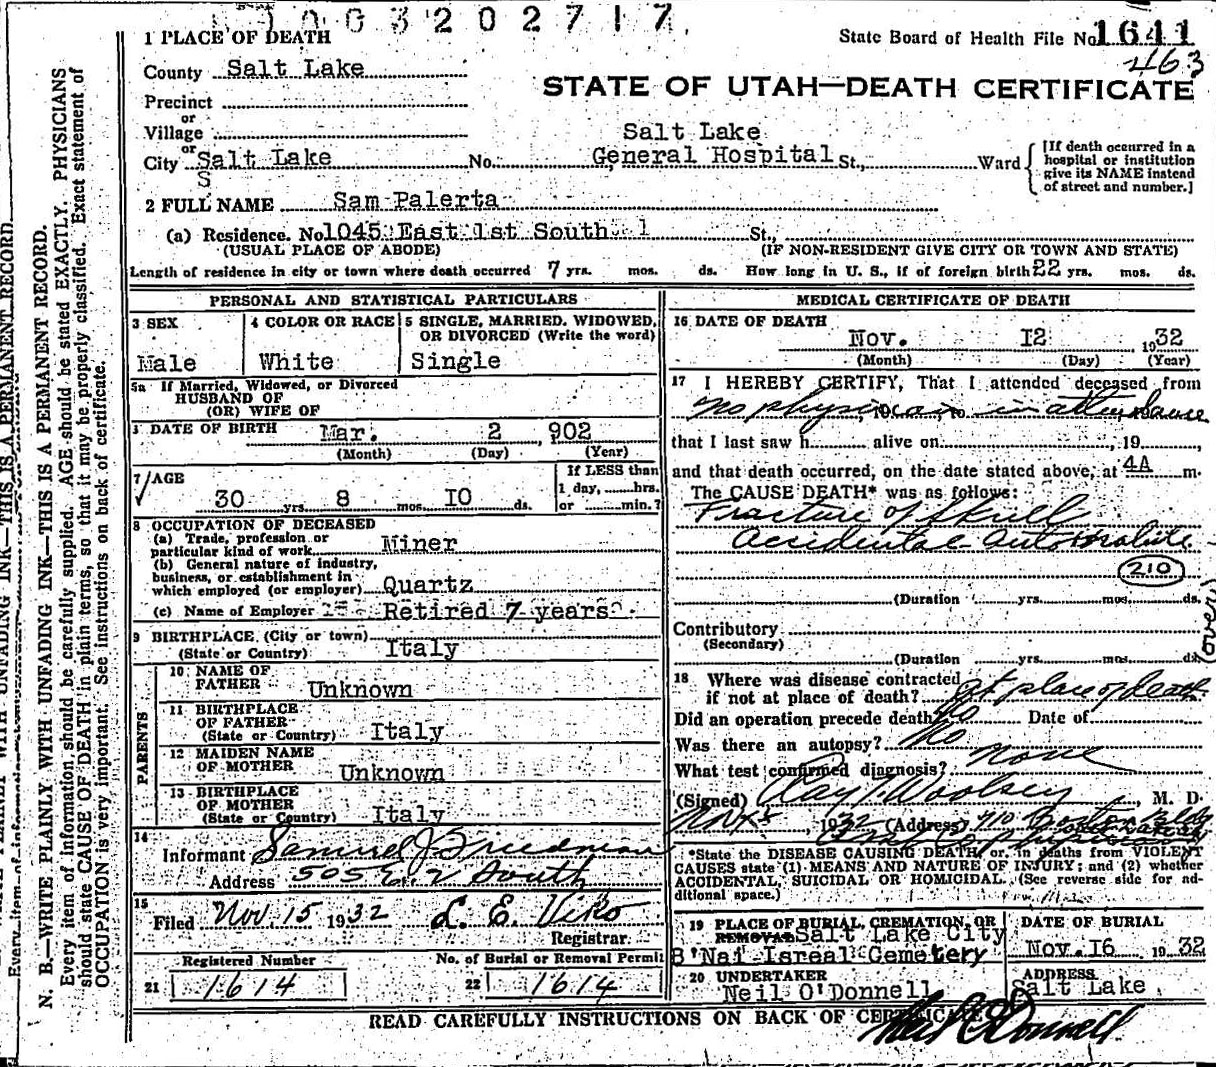 1003202717
State Board of Health File No. 1641
463
STATE OF UTAH—DEATH CERTIFICATE
1 PLACE OF DEATH
County Salt Lake
Precinct
or
Village
or
City Salt Lake No. Salt Lake General Hospital St., Ward
S
[If death occurred in a
hospital or institution
give its NAME instead
of street and number.]
2 FULL NAME Sam Palerta
(a) Residence. No 1045 East 1st South 1 St.,
(USUAL PLACE OF ABODE) (IF NON-RESIDENT GIVE CITY OR TOWN AND STATE)
Length of residence in city or town where death occurred 7 yrs. mos. ds. How long in U. S., if of foreign birth 22 yrs. mos. ds.
PERSONAL AND STATISTICAL PARTICULARS
3 SEX
Male
4 COLOR OR RACE
White
5 SINGLE, MARRIED, WIDOWED,
OR DIVORCED (Write the word)
Single
5a If Married, Widowed, or Divorced
HUSBAND OF
(OR) WIFE OF
DATE OF BIRTH Mar. 2, 902
(Month) (Day) (Year)
7 AGE
30 yrs. 8 mos. 10 ds.
If LESS than
1 day, hrs.
or min.?
8 OCCUPATION OF DECEASED
(a) Trade, profession or
particular kind of work Miner
(b) General nature of industry,
business, or establishment in
which employed (or employer) Quartz
(c) Name of Employer Retired 7 years
9 BIRTHPLACE (City or town)
(State or Country) Italy
PARENTS
10 NAME OF
FATHER Unknown
11 BIRTHPLACE
OF FATHER
(State or Country) Italy
12 MAIDEN NAME
OF MOTHER Unknown
13 BIRTHPLACE
OF MOTHER
(State or Country) Italy
14
Informant Samuel J. Friedman
Address 505 E. 2 South
15
Filed Nov. 15 1932 L. E. Viko
Registrar.
Registered Number
21 1614
No. of Burial or Removal Permit
22 1614
MEDICAL CERTIFICATE OF DEATH
16 DATE OF DEATH
Nov. 12, 1932
(Month) (Day) (Year)
17 I HEREBY CERTIFY, That I attended deceased from
No physician in attendance
that I last saw h alive on , 19
and that death occurred, on the date stated above, at 4A m.
The CAUSE DEATH* was as follows:
Fracture of Skull
Accidental-Automobile
210
(Duration yrs. mos. ds.
(over)
Contributory
(Secondary)
(Duration yrs. mos. ds.
18 Where was disease contracted
if not at place of death? at place of death
Did an operation precede death? No Date of
Was there an autopsy? No
What test confirmed diagnosis? None
(Signed) Ray T. Woolsey, M. D.
1932 (Address) 710 Boston Bldg
*State the DISEASE CAUSING DEATH, or, in deaths from VIOLENT
CAUSES state (1) MEANS AND NATURE OF INJURY; and (2) whether
ACCIDENTAL, SUICIDAL OR HOMICIDAL. (See reverse side for ad-
ditional space.)
19 PLACE OF BURIAL, CREMATION, OR
REMOVAL Salt Lake City
B'Nai Isreal Cemetery
DATE OF BURIAL
Nov. 16 1932
20 UNDERTAKER
Neil O'Donnell
ADDRESS
Salt Lake
READ CAREFULLY INSTRUCTIONS ON BACK OF CERTIFICATE
Neil O'Donnell
N. B.—WRITE PLAINLY WITH UNFADING INK—THIS IS A PERMANENT RECORD.
Every item of information should be carefully supplied. AGE should be stated EXACTLY. PHYSICIANS
should state CAUSE OF DEATH in plain terms, so that it may be properly classified. Exact statement of
OCCUPATION is very important. See instructions on back of certificate.